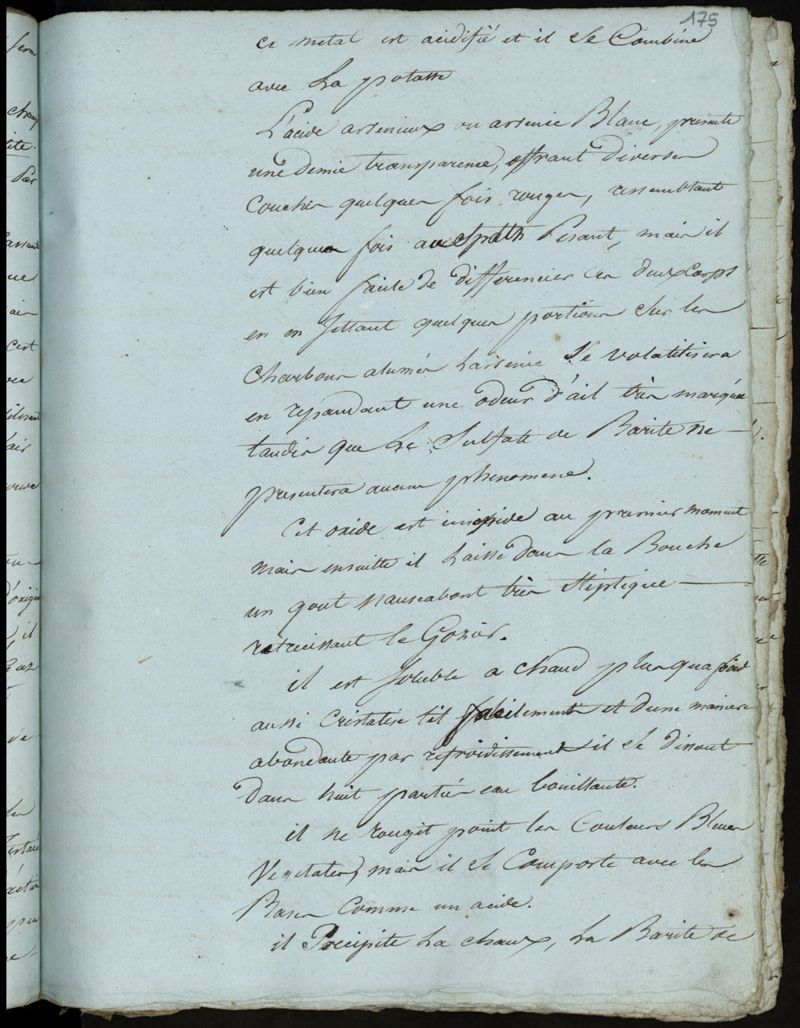 175
ce metal est acidifié et il se Combine
avec la potasse
L'acide arsenieux ou arsenic Blanc, presente
une demie transparence, offrant diverses
Couches quelques fois rouges, ressemblant
quelques fois au spath Pesant, mais il
est bien facile de differencier ces deux Corps
en en jettant quelques portions sur les
Charbons alumés L'arsenic se volatilisera
en repandant une odeur d'ail très marquée
tandis que le Sulfate de Barite ne
presentera aucun phenomene.
Cet oxide est insipide au premier moment
mais ensuitte il laisse dans la Bouche
un gout nauseabont très stiptique
retressissant le Gozier.
il est soluble a chaud plus qua froid
aussi Cristalise t'il facilement et d'une maniere
abondante par refroidissement il se dissout
dans huit parties eau bouillante.
il ne rougit point les Couleurs Bleues
Vegetales, mais il se Comporte avec les
Bases Comme un acide.
il Precipite La chaux, La Barite de